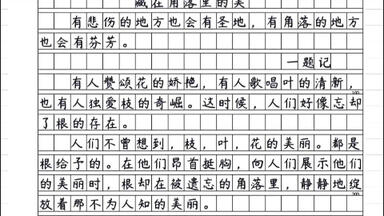 藏在角落里的美
有悲伤的地方也会有圣地，有角落的地方
也会有芬芳。
一题记
有人赞颂花的娇艳，有人歌唱叶的清新，
也有人独爱枝的奇崛。这时候，人们好像忘却
了根的存在。
人们不曾想到，枝，叶，花的美丽。都是
根给予的。在他们昂首挺胸，向人们展示他们
的美丽时，根却在被遗忘的角落里，静静地绽
放着那不为人知的美丽。